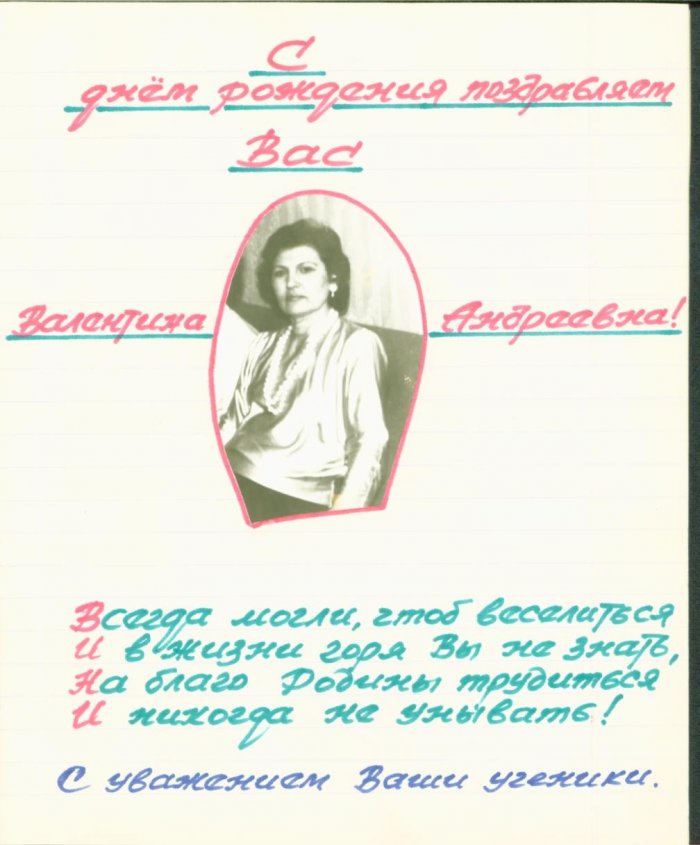 С
днём рождения поздравляем
Вас
Валентина Андреевна!
Всегда могли, чтоб веселиться
И в жизни горя Вы не знать,
На благо Родины трудиться
И никогда не унывать!
С уважением Ваши ученики.